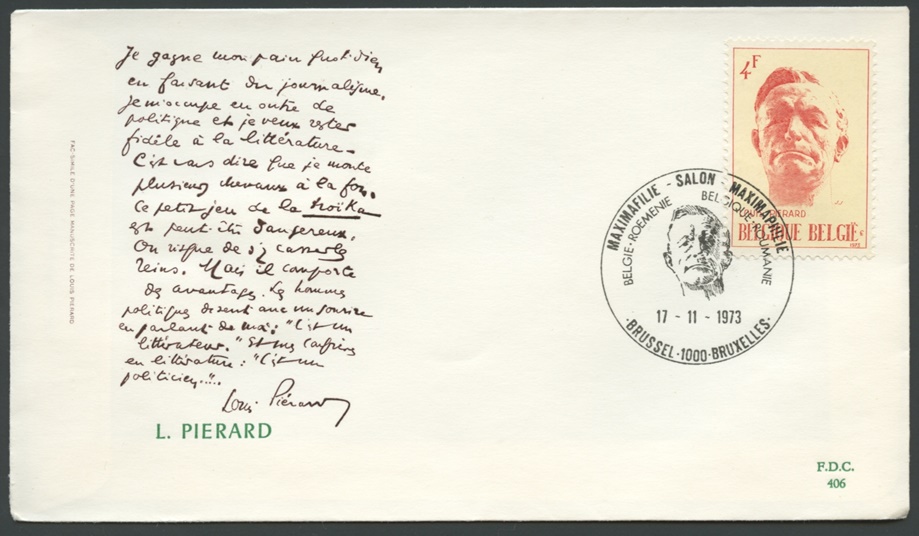 Je gagne mon pain quotidien
en faisant du journalisme.
Je m'occupe en outre de
politique et je veux rester
fidèle à la littérature.
C'est vous dire que je monte
plusieurs chevaux à la fois.
Ce petit jeu de la troïka
est peut-être dangereux.
On risque de s'y casser les
reins. Mais il comporte
des avantages. Les hommes
politiques disent avec un sourire
en parlant de moi: "C'est un
littérateur." Et mes confrères
en littérature: "C'est un
politicien."..
Louis Piérard
L. PIERARD
FAC-SIMILE D'UNE PAGE MANUSCRITE DE LOUIS PIERARD
4F
LOUIS PIERARD
BELGIQUE BELGIË
1973
MAXIMAFILIE - SALON - MAXIMAPHILIE
BELGIE-ROEMENIE BELGIQUE-ROUMANIE
17 - 11 - 1973
·BRUSSEL·1000·BRUXELLES·
F.D.C.
406